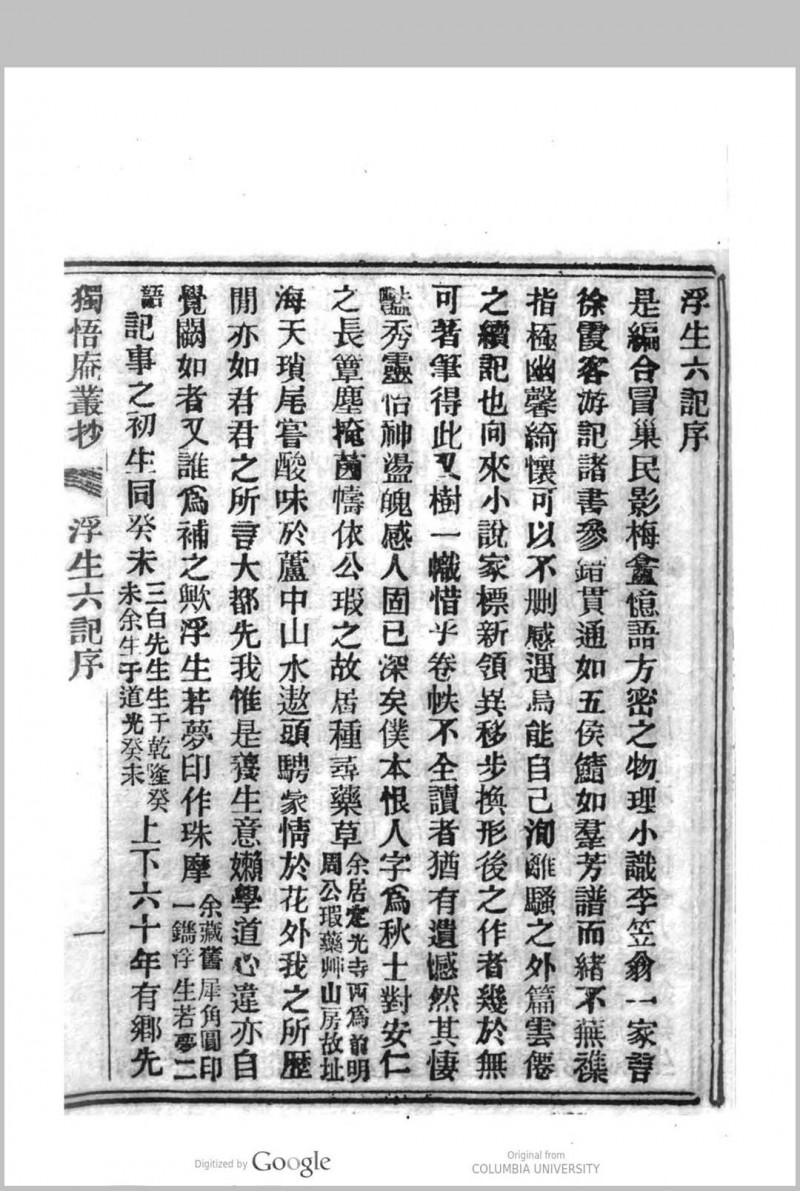 浮生六記序
是編合冒巢民影梅龕憶語方密之物理小識李笠翁一家言
徐霞客游記諸書參錯貫通如五侯鯖如羣芳譜而緒不蕪襍
指極幽馨綺懷可以不删感遇烏能自已洵離騷之外篇雲僊
之續記也向來小說家標新領異移步換形後之作者幾於無
可著筆得此又樹一幟惜乎卷帙不全讀者猶有遺憾然其悽
豔秀靈怡神盪魄感人固已深矣僕本恨人字爲秋士對安仁
之長簟塵掩茵幬依公瑕之故居種尋藥草余居定光寺西爲前明周公瑕藥艸山房故址
海天瑣尾嘗酸味於蘆中山水遨頭騁豪情於花外我之所歷
閒亦如君君之所言大都先我惟是養生意嬾學道心違亦自
覺闕如者又誰爲補之歟浮生若夢印作珠摩余藏舊犀角圓印一鐫浮生若夢二
語記事之初生同癸未三白先生生于乾隆癸未余生于道光癸未上下六十年有鄉先
獨悟庵叢抄 浮生六記序 一
Digitized by Google
Original from
COLUMBIA UNIVERSITY